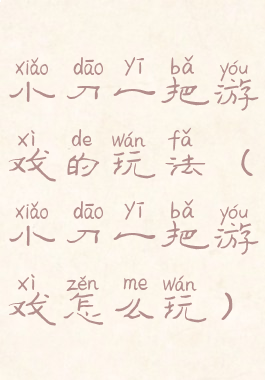 xiǎo dāo yī bǎ yóu
小刀一把游
xì de wán fǎ
戏的玩法（
xiǎo dāo yī bǎ yóu
小刀一把游
xì zěn me wán
戏怎么玩）